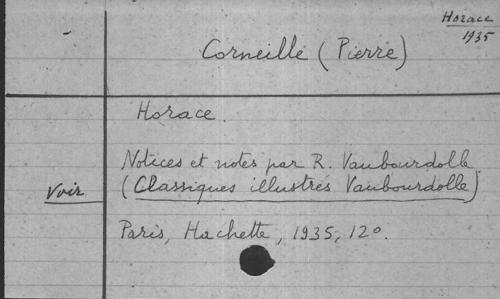 Horace
1935
Corneille (Pierre)
Horace.
Notices et notes par R. Vaubourdolle.
Voir
(Classiques illustrés Vaubourdolle)
Paris, Hachette, 1935, 12º.